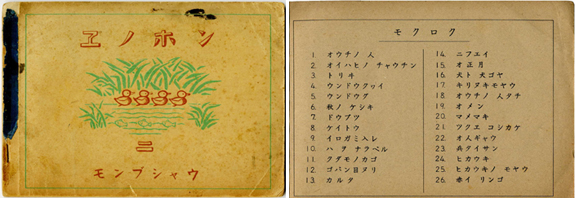 ヱノホン
二
モンブシャウ
モクロク
1. オウチノ 人
2. オイハヒノ チャウチン
3. トリヰ
4. ウンドウグヮイ
5. ウンドウグ
6. 秋ノ ケシキ
7. ドウブツ
8. ケイトウ
9. イロガミ入レ
10. ハヲ ナラベル
11. クダモノカゴ
12. ゴバン目ヌリ
13. カルタ
14. ニフエイ
15. オ正月
16. 犬ト 犬ゴヤ
17. キリヌキモヤウ
18. オウチノ 人タチ
19. オメン
20. マメマキ
21. ツクエ コシカケ
22. オ人ギャウ
23. 兵タイサン
24. ヒカウキ
25. ヒカウキノ モヤウ
26. 赤イ リンゴ